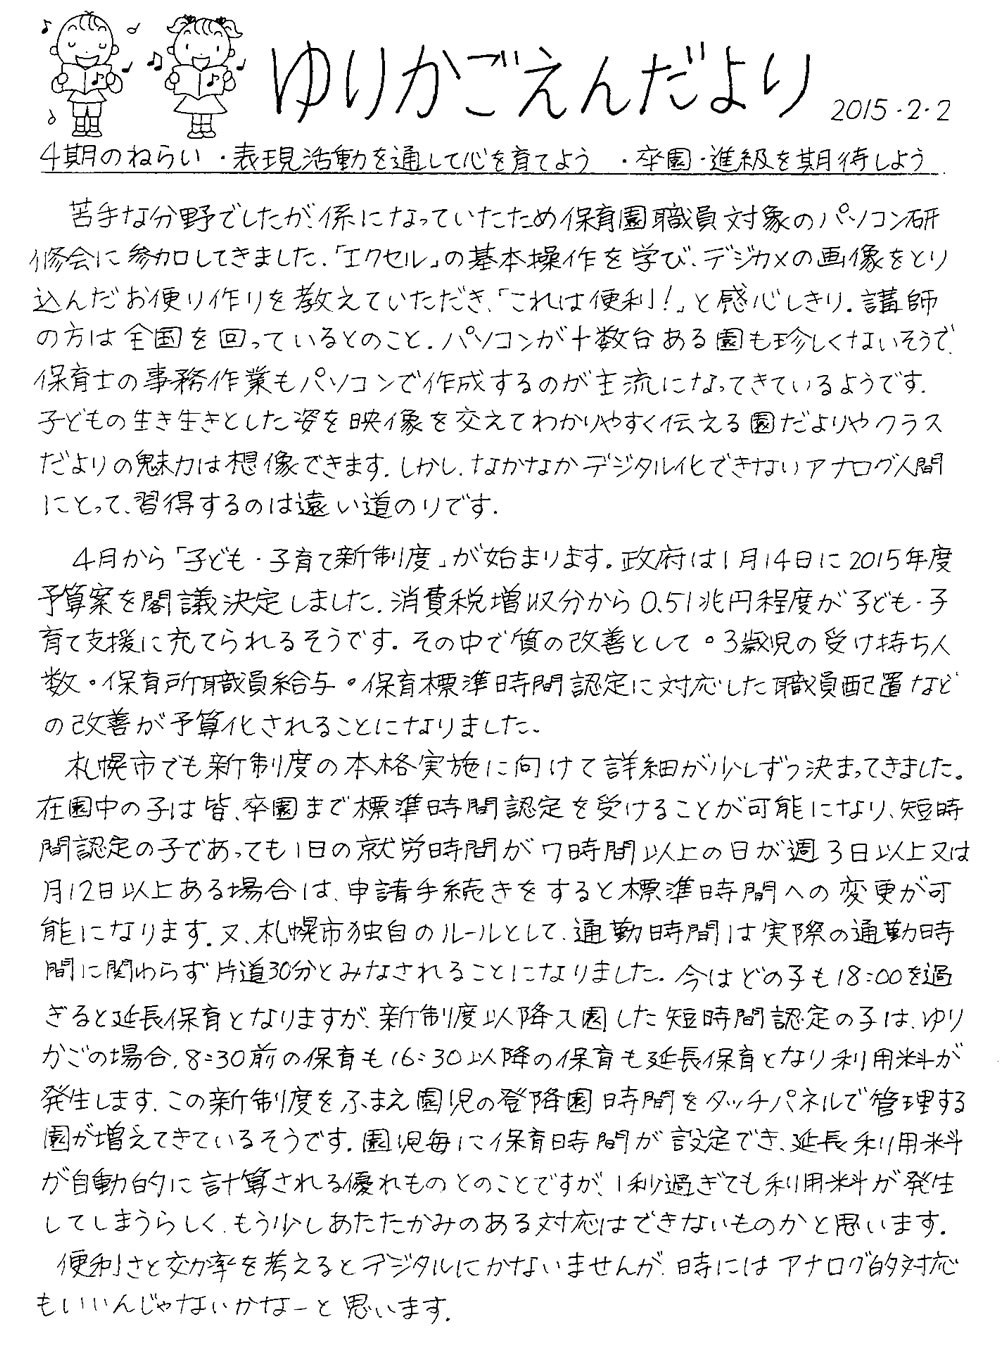 ゆりかごえんだより 2015・2・2
4期のねらい ・表現活動を通して心を育てよう ・卒園・進級を期待しよう
苦手な分野でしたが、係になっていたため保育園職員対象のパソコン研
修会に参加してきました。「エクセル」の基本操作を学び、デジカメの画像をとり
込んだお便り作りを教えていただき、「これは便利!」と感心しきり。講師
の方は全国を回っているとのこと。パソコンが十数台ある園も珍しくないそうで、
保育士の事務作業もパソコンで作成するのが主流になってきているようです。
子どもの生き生きとした姿を映像を交えてわかりやすく伝える園だよりやクラス
だよりの魅力は想像できます。しかし、なかなかデジタル化できないアナログ人間
にとって、習得するのは遠い道のりです。
4月から「子ども・子育て新制度」が始まります。政府は1月14日に2015年度
予算案を閣議決定しました。消費税増収分から0.51兆円程度が子ども・子
育て支援に充てられるそうです。その中で質の改善として。3歳児の受け持ち人
数。保育所職員給与。保育標準時間認定に対応した職員配置など
の改善が予算化されることになりました。
札幌市でも新制度の本格実施に向けて詳細が少しずつ決まってきました。
在園中の子は皆、卒園まで標準時間認定を受けることが可能になり、短時
間認定の子であっても1日の就労時間が7時間以上の日が週3日以上又は
月12日以上ある場合は、申請手続きをすると標準時間への変更が可
能になります。又、札幌市独自のルールとして、通勤時間は実際の通勤時
間に関わらず片道30分とみなされることになりました。今はどの子も18:00を過
ぎると延長保育となりますが、新制度以降入園した短時間認定の子は、ゆり
かごの場合、8:30前の保育も16:30以降の保育も延長保育となり利用料が
発生します。この新制度をふまえ園児の登降園時間をタッチパネルで管理する
園が増えてきているそうです。園児毎に保育時間が設定でき、延長利用料
が自動的に計算される優れものとのことですが、1秒過ぎても利用料が発生
してしまうらしく、もう少しあたたかみのある対応はできないものかと思います。
便利さと効率を考えるとデジタルにかないませんが、時にはアナログ的対応
もいいんじゃないかなーと思います。